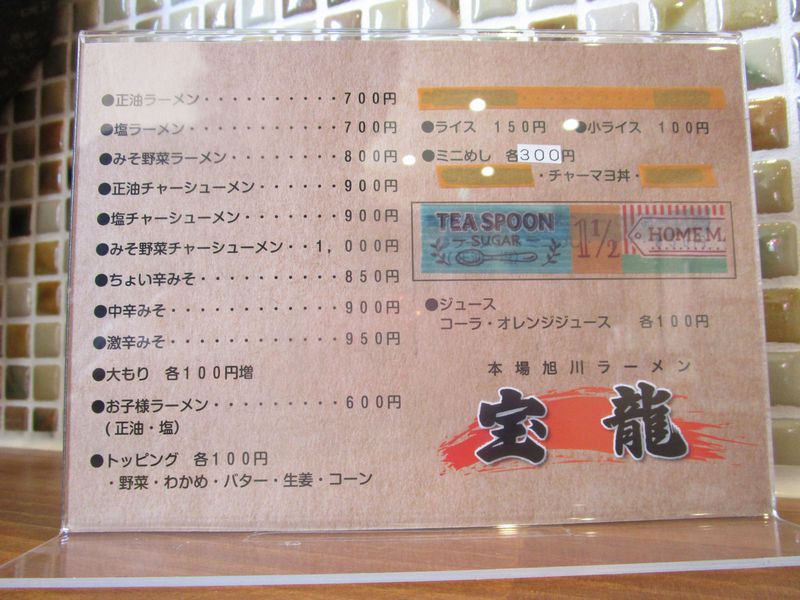 ●正油ラーメン・・・・・・・・・・・700円
●塩ラーメン・・・・・・・・・・・・700円
●みそ野菜ラーメン・・・・・・・・・800円
●正油チャーシューメン・・・・・・・900円
●塩チャーシューメン・・・・・・・・900円
●みそ野菜チャーシューメン・・1,000円
●ちょい辛みそ・・・・・・・・・・・850円
●中辛みそ・・・・・・・・・・・・・900円
●激辛みそ・・・・・・・・・・・・・950円
●大もり 各100円増
●お子様ラーメン・・・・・・・・・・600円
(正油・塩)
●トッピング 各100円
・野菜・わかめ・バター・生姜・コーン
●ライス 150円 ●小ライス 100円
●ミニめし 各300円
・チャーマヨ丼・
TEA SPOON
SUGAR
1 1/2
HOME M
●ジュース
コーラ・オレンジジュース 各100円
本場旭川ラーメン
宝龍